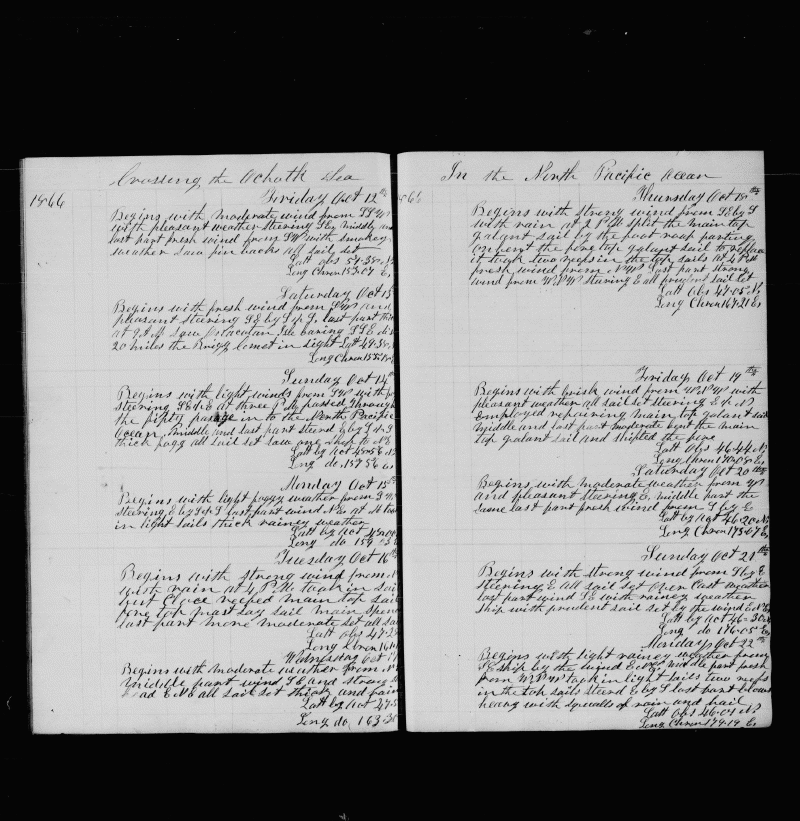 Crossing the Ochoth Sea
1866
Friday Oct 12th
Begins with Moderate wind from SSW
with pleasant weather steering SE by middle and
last part fresh wind from SW with smokey
weather Saw fin backs all sail set
Latt obs 54-38 N
Long Chron 153-07 E
Saturday Oct 13
Begins with fresh wind from SW and
pleasant steering SE by S &
at 7 AM Saw Isle baring SSE dis
20 miles the Brigg Comet in sight Latt 49-35
Long Chron
Sunday Oct 14th
Begins with light winds from SW with
steering at three P M passed through
the fifty passage in to the North Pacific
Ocean Middle and last part steard E by S & S
thick fogg all sail set saw one Ship to NE
Latt by Act N
Long do 157-56 E
Monday Oct 15th
Begins with light foggy weather from
steering E by S & S last part wind NE at 4 took
in light sails thick rainey weather
Latt by Act
Long do
Tuesday Oct 16th
Begins with strong wind from
with rain at 4 P M took in sail
put Close reefed main top sail
fore top mast stay sail main
last part more moderate set all sail
Latt obs 47-2
Long Chron
Wednesday Oct 17
Begins with moderate weather from
middle part wind SE and strong
head E NE all sail set thick and rain
Latt by Act 47-
Long do 163-3
In the North Pacific Ocean
1866
Thursday Oct 18th
Begins with strong wind from SE by S
with rain at 2 P M split the main top
galant sail by the foot roap parting
onbent the fore top galant sail to replace
it took two reefs in the top sails at 4 P M
fresh wind from NW last part strong
wind from WNW stearing E all prudent sail set
Latt Obs 47-05 N
Long Chron 167-21 E
Friday Oct 19th
Begins with brisk wind from WNW with
pleasant weather all sail set steering E & N
Employed repairing main top galant sail
middle and last part moderate bent the main
top galant sail and shifted the fore
Latt Obs 46-44 N
Long Chron E
Saturday Oct 20th
Begins with moderate weather from W
and pleasant steering E. middle part the
same last part fresh wind from S by E
Latt by Act 46-20 N
Long Chron 173-07 E
Sunday Oct 21th
Begins with strong wind from S by E
Steering E all sail set Over Cast weather
last part wind SE with rainey weather
ship with prudent sail set by the wind
Latt by Act 46-30 N
Long do 176-05 E
Monday Oct 22th
Begins with light rainey weather from
SE ship by the wind middle part fresh
from WNW took in light sails two reefs
in the top sails steard E by S last part blows
heavy with squalls of rain and hail
Latt Obs 46-04 N
Long Chron 179-19 E